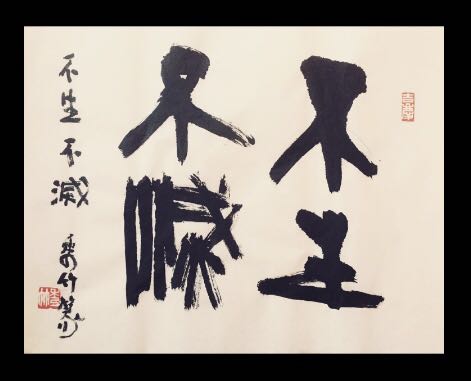 不生
不滅
不生不滅 竹